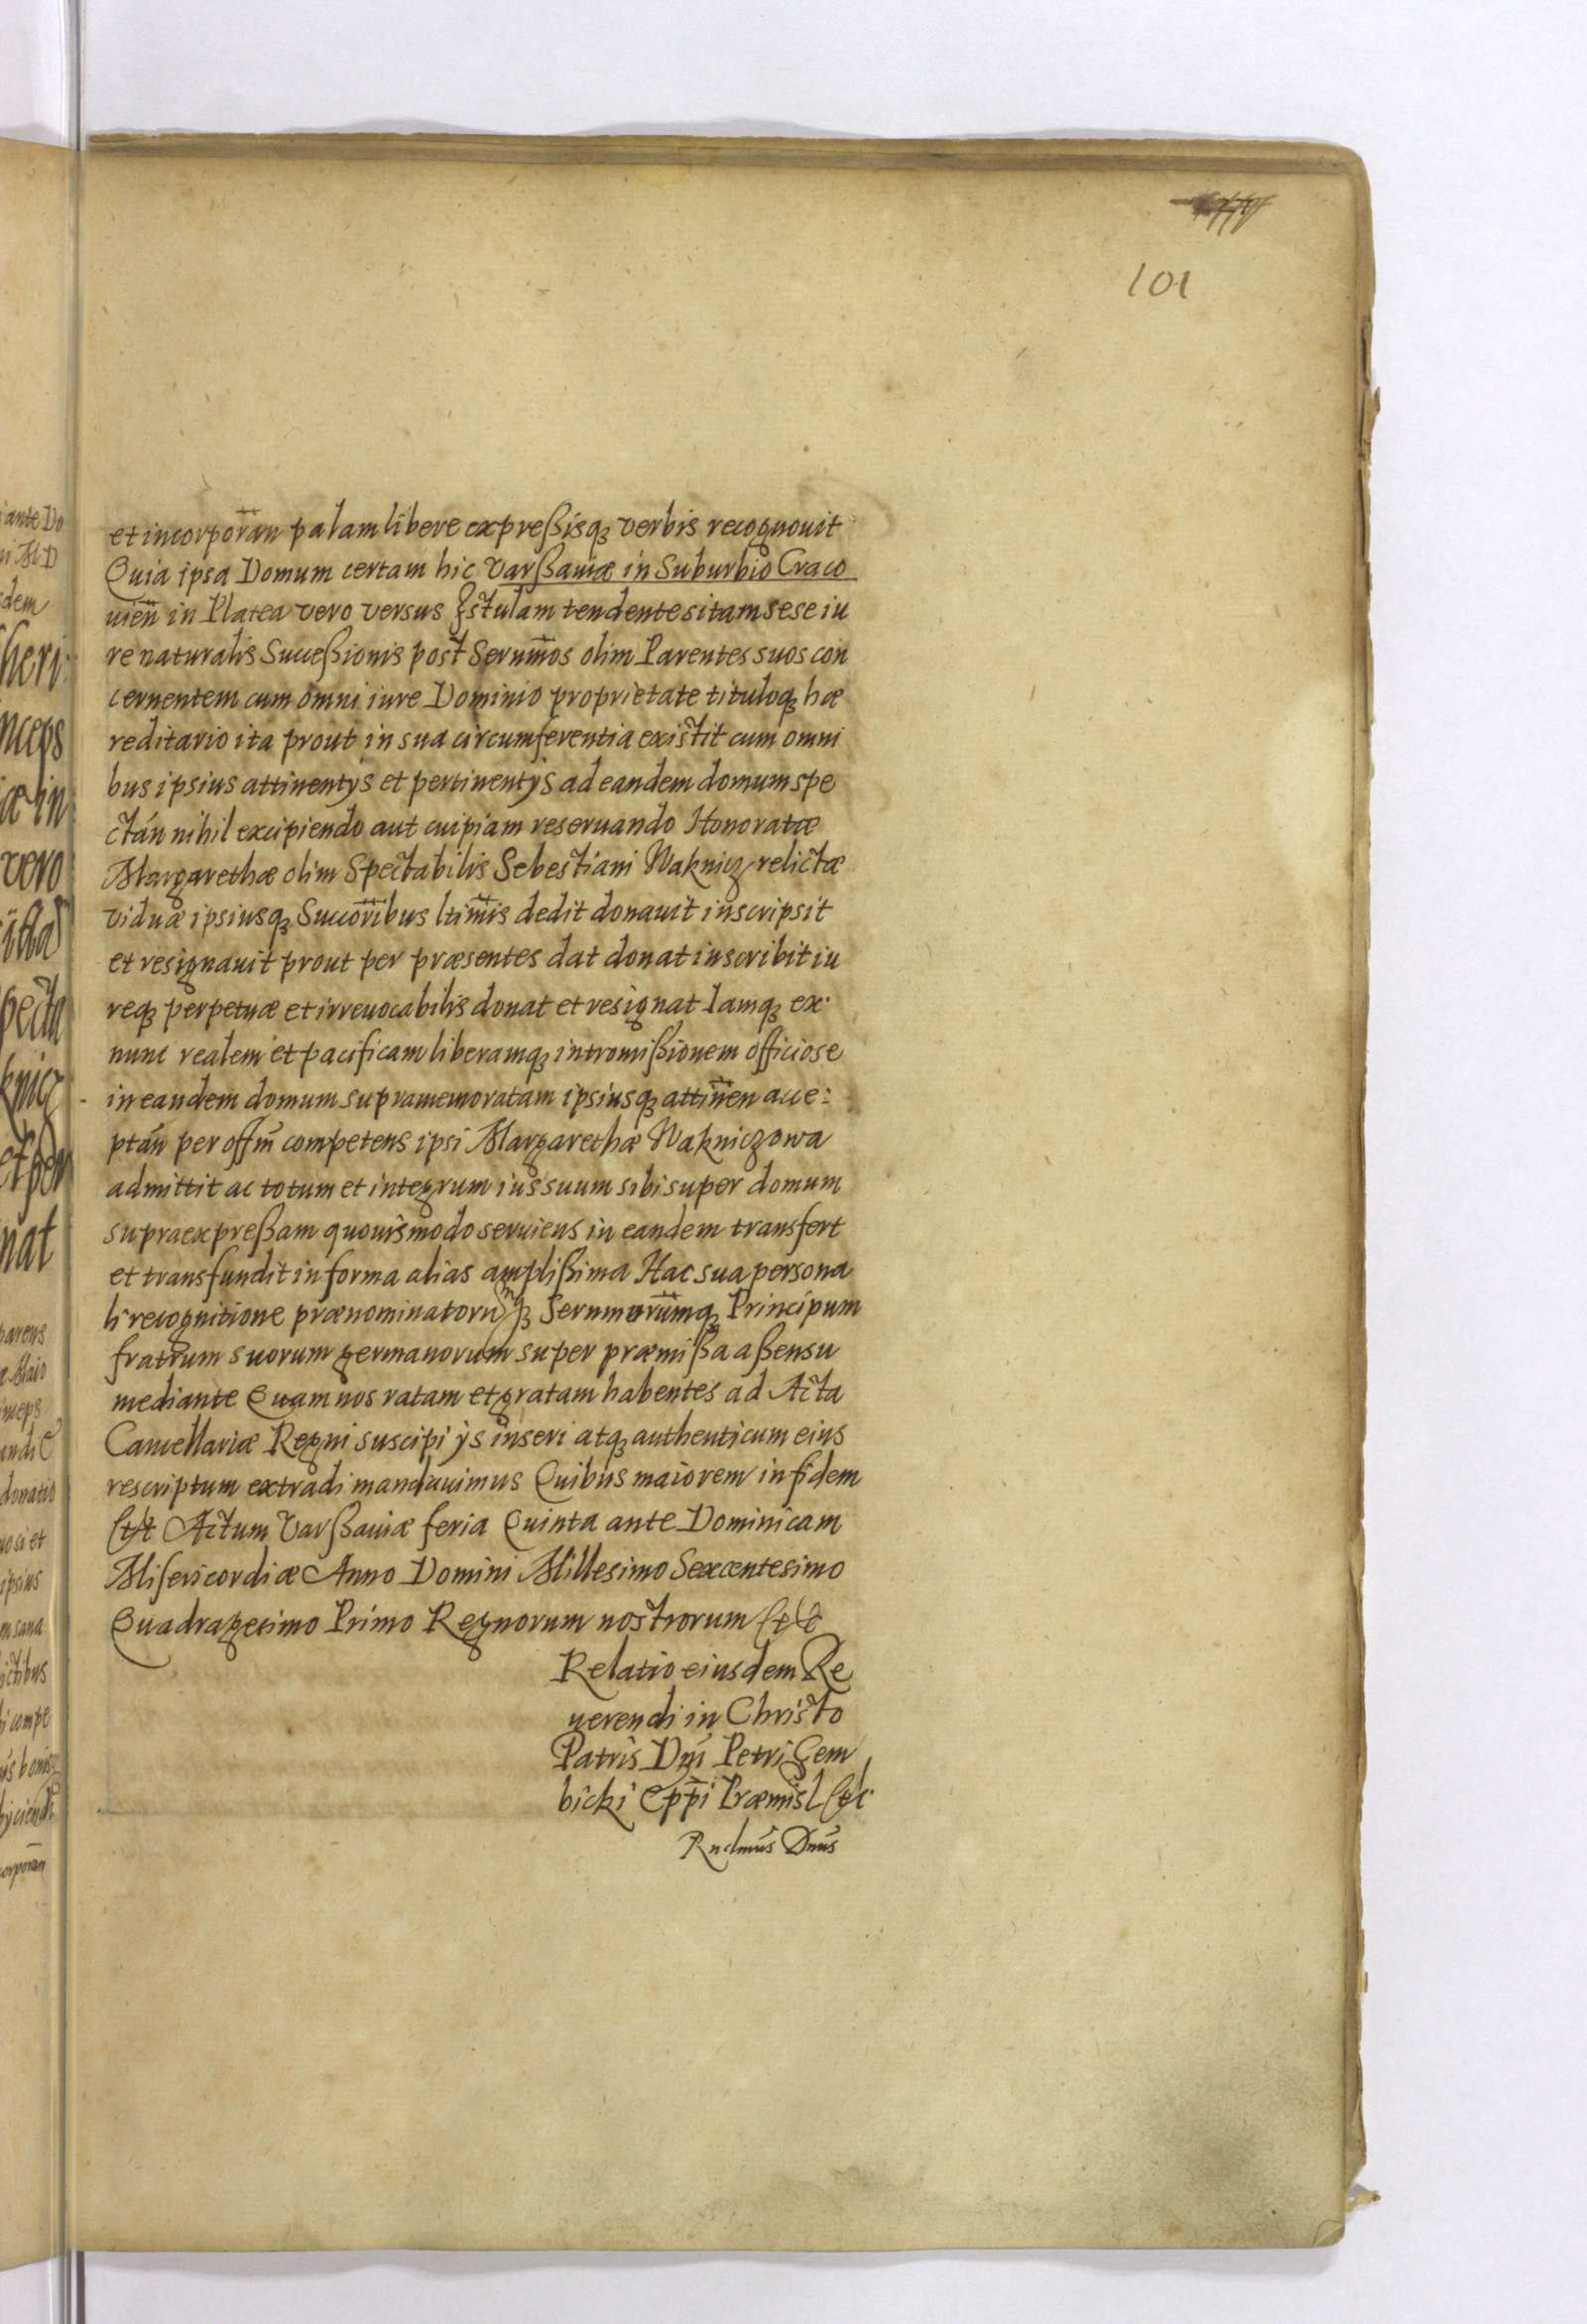 101
et incorporan̄ palam libere expreßisq₃ verbis recognouit
Quia ipsa Domum certam hic Varßauiæ in Suburbio Craco
uien̄ in Platea vero versus Istulam tendente sitam sese iu
re naturalis Succeßionis post Serenm̄os olim Parentes suos con
cernentem cum omni iure Dominio proprietate tituloq₃ hæ
reditario ita prout in sua circumferentia existit cum omni
bus ipsius attinentys et pertinentys ad eandem domum spe
ctán nihil excipiendo aut cuipiam reseruando Honoratæ
Margarethæ olim Spectabilis Sebestiani Waknicz relictæ
viduæ ipsiusq₃ Succor̄ibus ltim̄is dedit donauit inscripsit
et resignauit prout per præsentes dat donat inscribit iu
req₃ perpetuæ et irreuocabilis donat et resignat Iamq₃ ex
nunc realem et pacificam liberamq₃ intromißionem officiose
in eandem domum supramemoratam ipsiusq₃ attin̄en acce:
ptán per offm̄ competens ipsi Margarethæ Wakniczowa
admittit ac totum et integrum ius suum sibi super domum
supraexpreßam quouismodo seruiens in eandem transfert
et transfundit in forma alias amplißima Hac sua persona
li recognitione prænominatorum Serenmorum̄q₃ Principum
fratrum suorum germanorum super præmißa aßensu
mediante Quam nos ratam et gratam habentes ad Acta
Cancellariæ Regni suscipi ys inseri atq₃ authenticum eius
rescriptum extradi mandauimus Quibus maiorem in fidem
Etc Actum Varßauiæ feria Quinta ante Dominicam
Misericordiæ Anno Domini Millesimo Sexcentesimo
Quadragesimo Primo Regnorum nostrorum Etc
Relatio eiusdem Re
uerendi in Christo
Patris Dnī Petri Gem
bicki Epp̄i Præmisl Etc
Rndmus Dnus